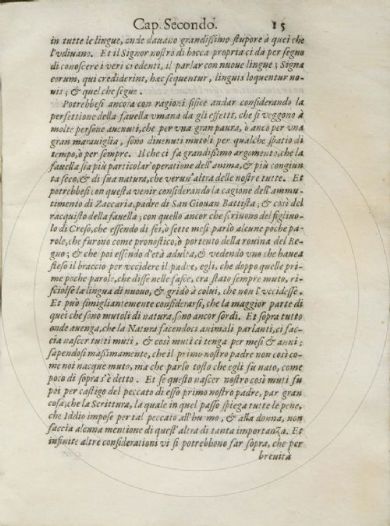 Cap. Secondo. 15
in tutte le lingue, onde dauano grandissimo stupore à quei che
l'vdiuano. Et il Signor nostro di bocca propria ci da per segno
di conoscere i veri credenti, il parlar con nuoue lingue; Signa
eorum, qui crediderint, hæc sequentur, linguis loquentur no-
uis; & quel che segue.
Potrebbesi ancora con ragioni fisice andar considerando la
perfettione della fauella vmana da gli effetti, che si veggono à
molte persone auenuti, che per vna gran paura, ò anco per vna
gran marauiglia, sono diuenuti mutoli per qualche spatio di
tempo, ò per sempre. Il che ci fà grandissimo argomento, che la
fauella sia più particolar' operatione dell'anima, & più congiun
ta seco, & di sua natura, che verun'altra delle nostre tutte. Et
potrebbesi con questa venir considerando la cagione dell'ammu-
timento di Zaccaria, padre di San Giouan Battista; & così del
racquisto della fauella; con quello ancor che scriuono del figliuo-
lo di Creso, che essendo di sei, ò sette mesi parlò alcune poche pa-
role, che furono come pronostico, ò portento della rouina del Re-
gno; & che poi essendo d'età adulta, & vedendo vno che hauea
steso il braccio per vccidere il padre, egli, che doppo quelle pri-
me poche parole, che disse nelle fasce, era stato sempre muto, ri-
sciolse la lingua di nuouo, & gridò à colui, che non l'vccidesse.
Et può simigliantemente considerarsi, che la maggior parte di
quei che sono mutoli di natura, sono ancor sordi. Et sopra tutto
onde auenga, che la Natura facendoci animali parlanti, ci fac-
cia nascer tutti muti, & così muti ci tenga per mesi & anni;
sapendosi massimamente, che il primo nostro padre non così co-
me noi nacque muto, ma che parlò tosto che egli fu nato, come
poco di sopra s'è detto. Et se questo nascer nostro così muti fu
poi per castigo del peccato di esso primo nostro padre, par gran
cosa, che la Scrittura, la quale in quel passo spiega tutte le pene,
che Iddio impose per tal peccato all'huomo, & alla donna, non
faccia alcuna mentione di quest'altra di tanta importanza. Et
infinite altre considerationi vi si potrebbono far sopra, che per
breuità